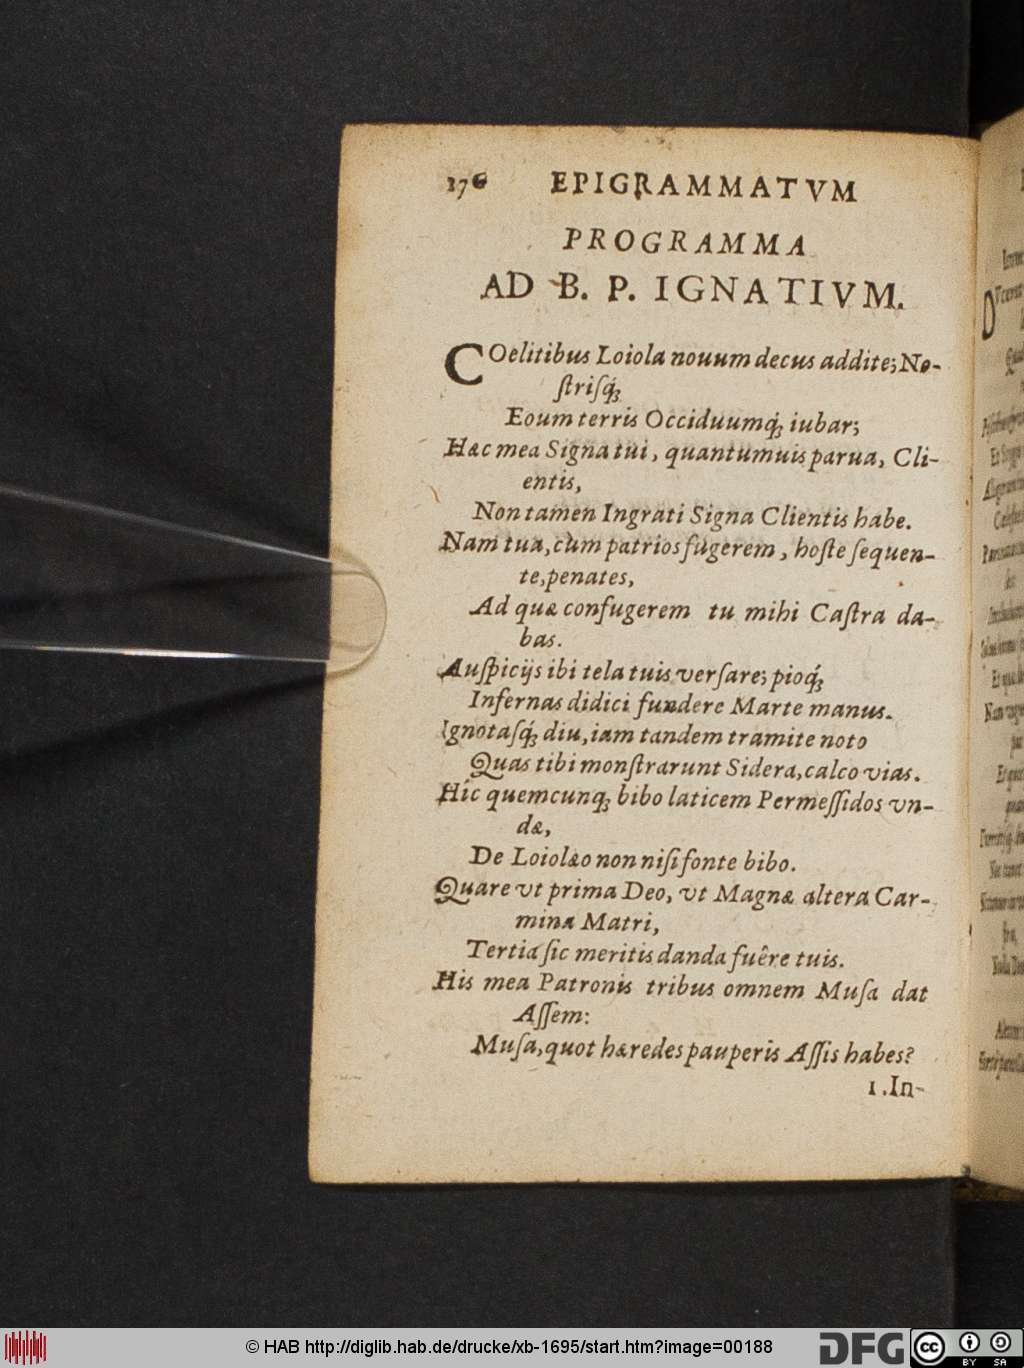 176 EPIGRAMMATVM
PROGRAMMA
AD B. P. IGNATIVM.
COelitibus Loiola nouum decus addite; No-
ſtriſq́;
Eoum terris Occiduumq́; iubar;
Hæc mea Signa tui, quantumuis parua, Cli-
entis,
Non tamen Ingrati Signa Clientis habe.
Nam tua, cum patrios fugerem, hoſte ſequen-
te, penates,
Ad quæ confugerem tu mihi Caſtra da-
bas.
Auſpicijs ibi tela tuis verſare; pioq́;
Infernas didici fundere Marte manus.
Ignotaſq́; diu, iam tandem tramite noto
Quas tibi monſtrarunt Sidera, calco vias.
Hic quemcunq; bibo laticem Permeſſidos vn-
dæ,
De Loiolæo non niſi fonte bibo.
Quare vt prima Deo, vt Magnæ altera Car-
mina Matri,
Tertia ſic meritis danda fuêre tuis.
His mea Patronis tribus omnem Muſa dat
Aſſem:
Muſa, quot hæredes pauperis Aſſis habes?
1. In-
© HAB http://diglib.hab.de/drucke/xb-1695/start.htm?image=00188
DFG
cc BY SA